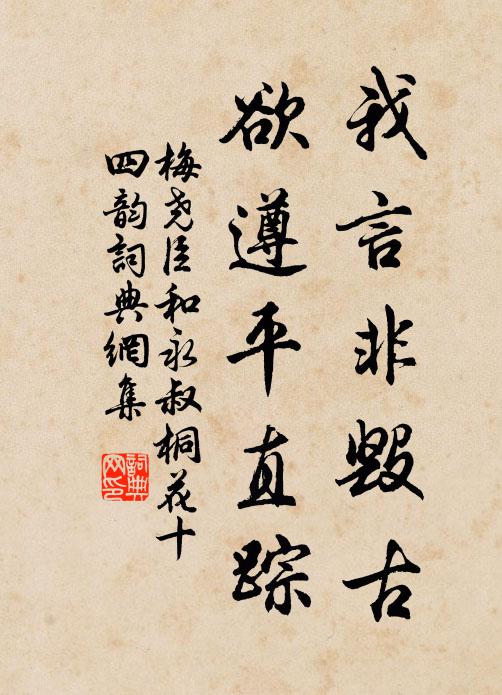 我言非毀古
欲遵平直踪
梅尧臣和永叔桐花十
四韵詞典網集
詞典网印